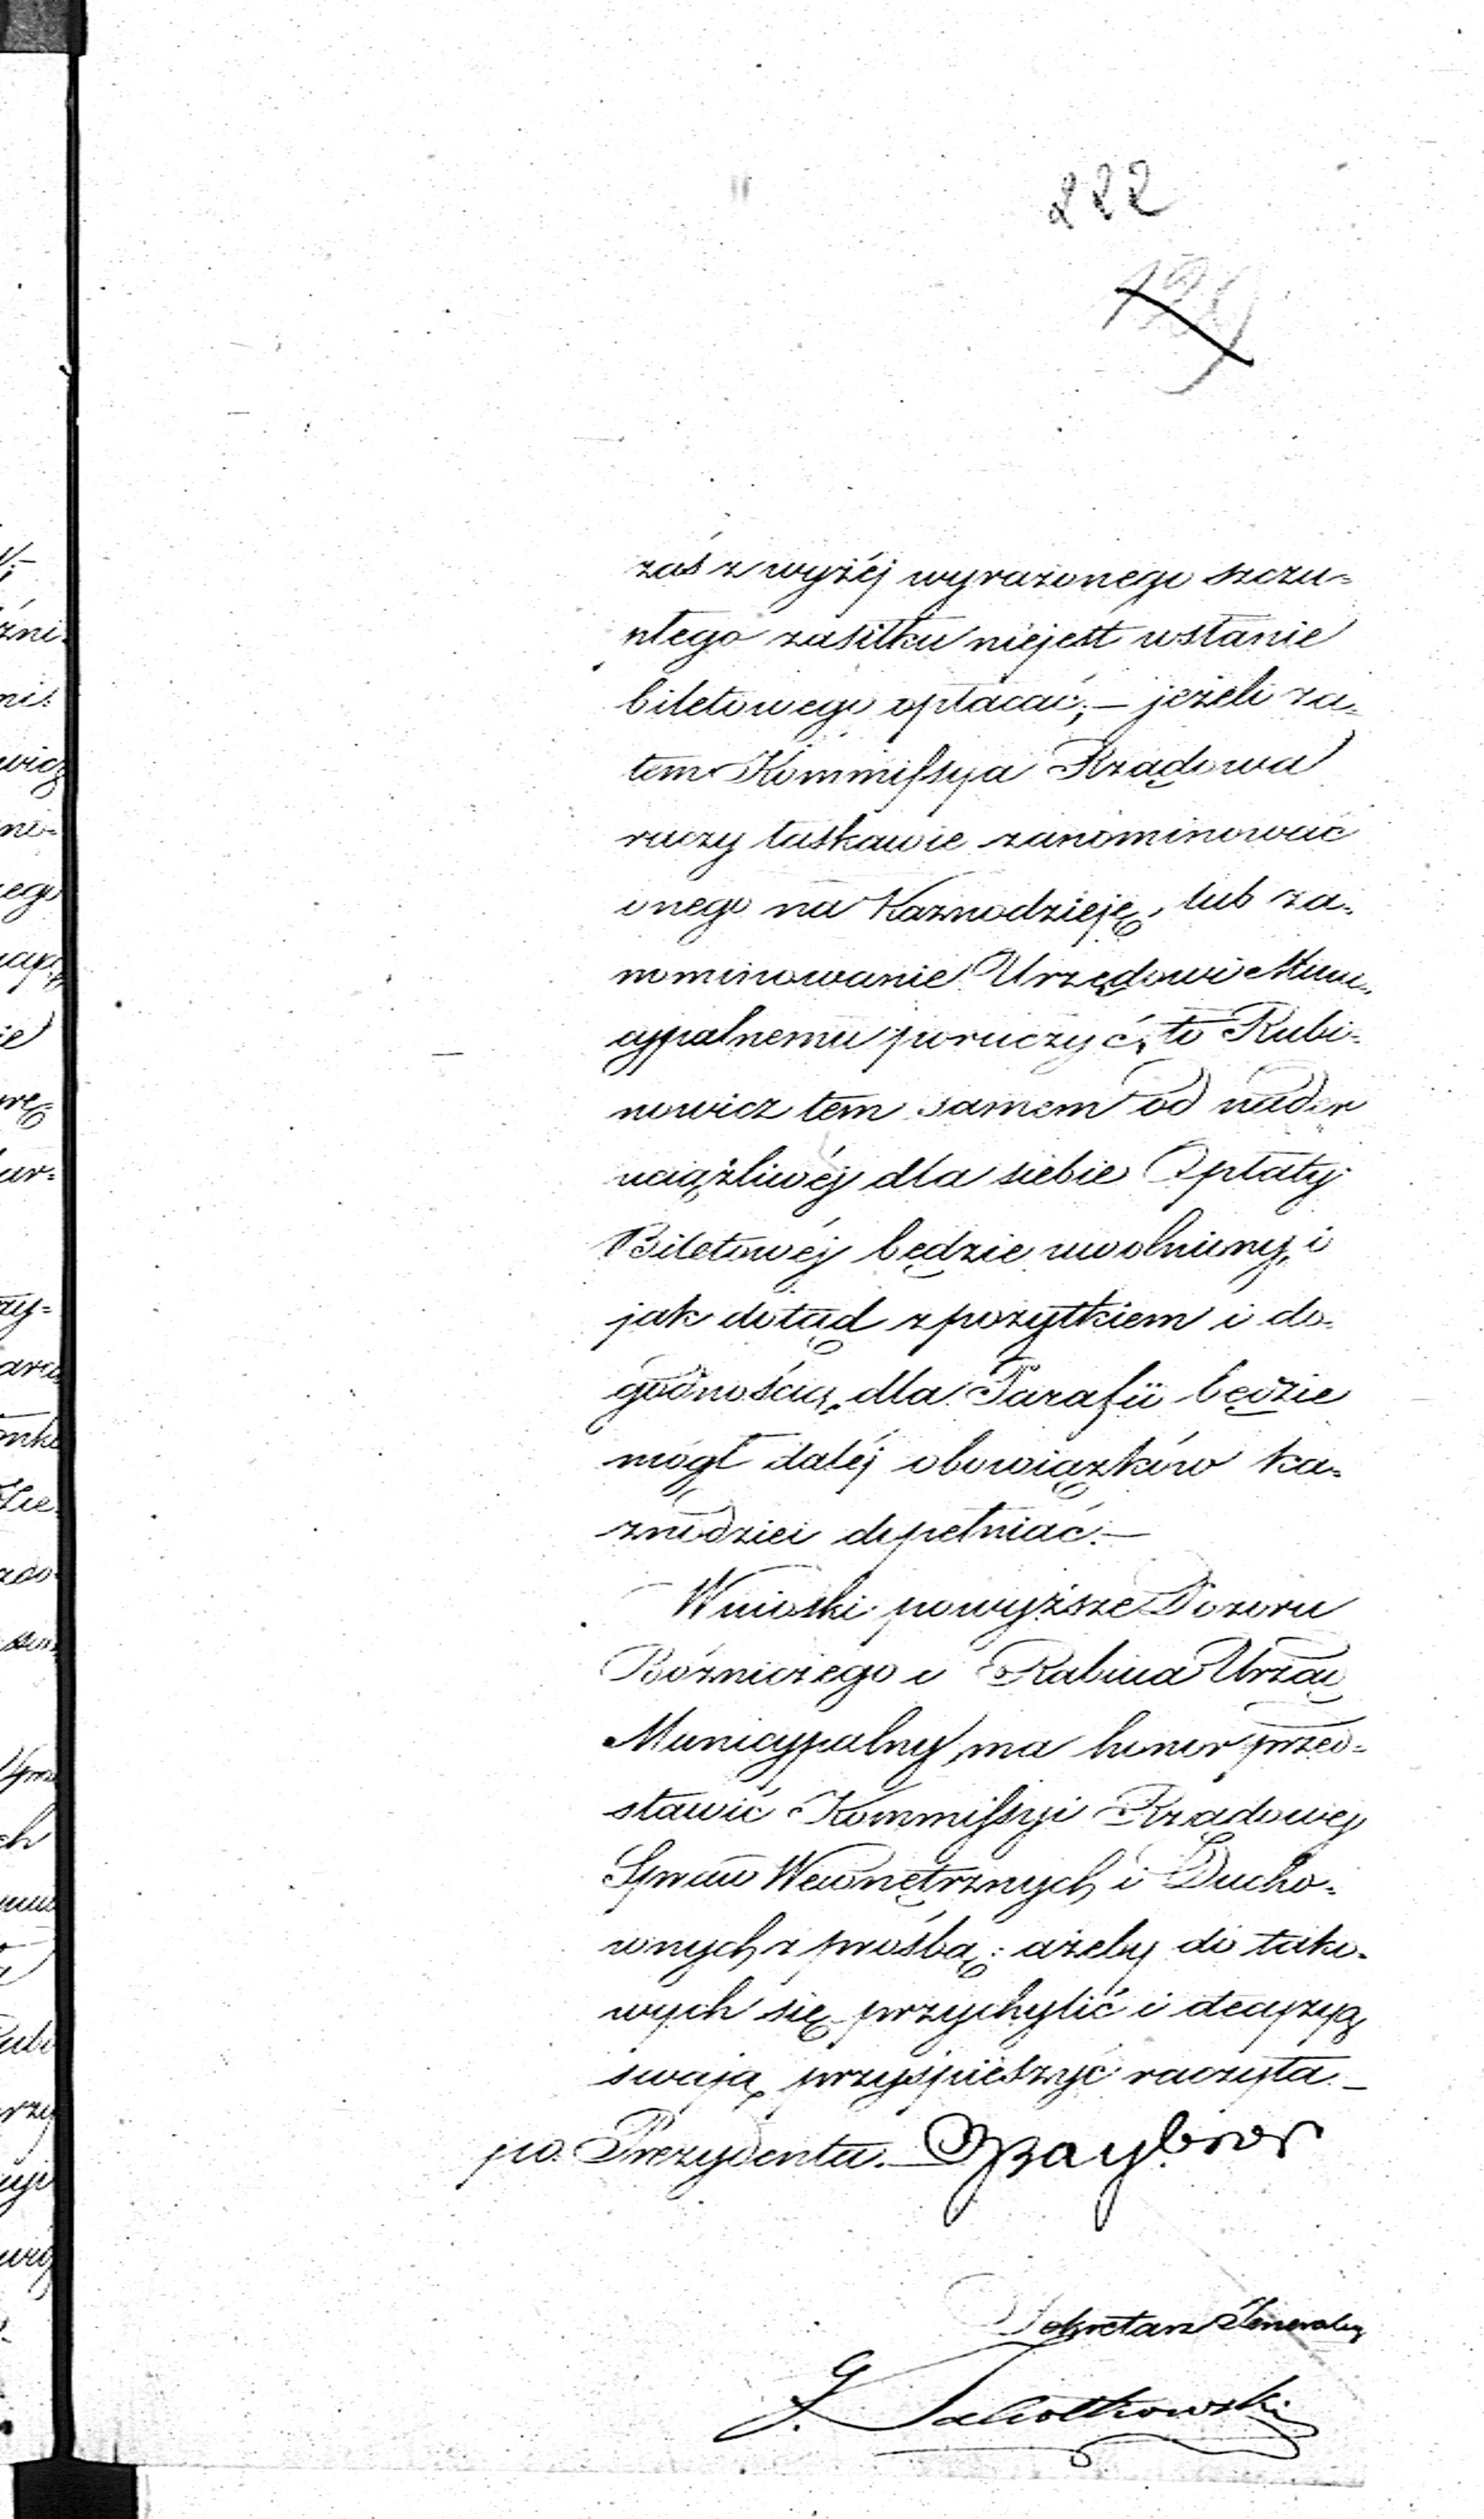 222
129
zaś z wyżéj wyrażonego szczu=
płego zasiłku niejest wstanie
biletowego opłacać; — jeżeli za=
tem Kommissya Rządowa
raczy łaskawie zanominować
onego na Kaznodzieję, lub za=
nominowanie Urzędowi Muni=
cypalnemu poruczyć, to Rubi=
nowicz tem samem od nader
uciążliwéj dla siebie Opłaty
Biletowéj będzie uwolniony, i
jak dotąd z pożytkiem i do=
godnością dla Parafii będzie
mógł daléj obowiązków ka=
znodziei dopełniać. —
Wnioski powyższe Dozoru
Bóżniczego i Rabina Urząd
Municypalny ma honor przed=
stawić Kommissyi Rządowey
Spraw Wewnętrznych i Ducho=
wnych z prośbą: ażeby do tako=
wych się przychylić i decyzyą
swoją przyśpieszyć raczyła. —
po. Prezydenta.
Sekretarz Jeneralny